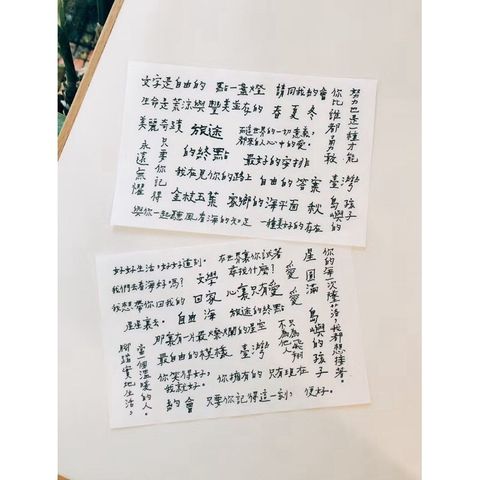 文字是自由的 點一盞燈
生命是荒涼與豐美並存的 春夏冬
你比誰都勇敢
努力也是一種才能
美麗奇蹟 旅途
世界的一切意義，
都來自人心中的愛。
的終點 最好的安排
永遠無懼
只要你記得
我在見你的路上 自由的答案 臺灣
金枝玉葉 家鄉的海平面 秋
島嶼的孩子
與你一起聽風看海的知足 一種美好的存在
好好生活，好好道別。
在世界裏你試著
尋找什麼？
我們去看海好嗎？ 文學 愛
我想帶你回我的 回家 心裏只有愛 愛
星星裏去。 自由 海 旅途的終點
那裏有一片最燦爛的星空
最自由的模樣 臺灣
不只為他人飛翔
星圓滿
島嶼的孩子
你的每一次
我都想接著。
腳踏實地生活，
當一個溫暖的人。
你笑得好，
我就好。
你擁有的只有現在
約會 只要你記得這一刻，便好。